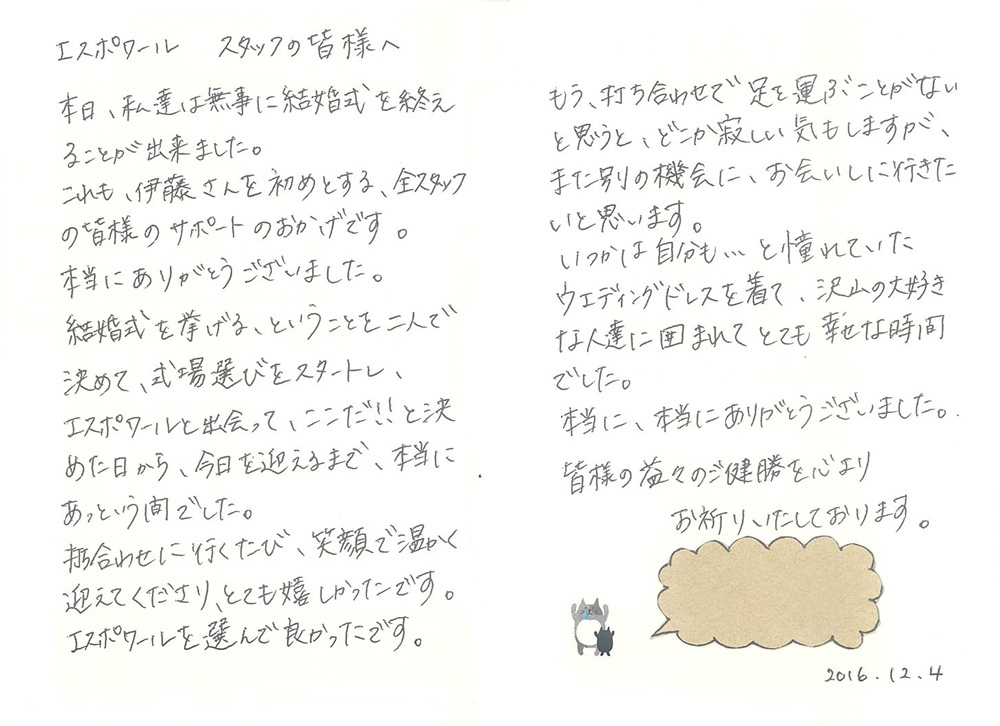 エスポワール　スタッフの皆様へ
本日、私達は無事に結婚式を終え
ることが出来ました。
これも、伊藤さんを初めとする、全スタッフ
の皆様のサポートのおかげです。
本当にありがとうございました。
結婚式を挙げる、ということを二人で
決めて、式場選びをスタートし、
エスポワールと出会って、ここだ!!と決
めた日から、今日を迎えるまで、本当に
あっという間でした。
打合わせに行くたび、笑顔で温かく
迎えてくださり、とても嬉しかったです。
エスポワールを選んで良かったです。
もう、打ち合わせで足を運ぶことがない
と思うと、どこか寂しい気もしますが、
また別の機会に、お会いしに行きた
いと思います。
いつかは自分も…と憧れていた
ウエディングドレスを着て、沢山の大好き
な人達に囲まれてとても幸せな時間
でした。
本当に、本当にありがとうございました。
皆様の益々のご健勝を心より
お祈りいたしております。
2016.12.4